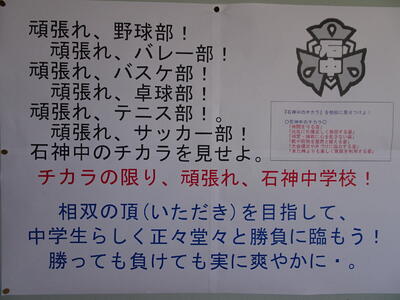 頑張れ、野球部！
頑張れ、バレー部！
頑張れ、バスケ部！
頑張れ、卓球部！
頑張れ、テニス部！。
頑張れ、サッカー部！
石神中のチカラを見せよ。
チカラの限り、頑張れ、石神中学校！
相双の頂（いただき）を目指して、
中学生らしく正々堂々と勝負に臨もう！
勝っても負けても実に爽やかに・。
石中
『石神中のチカラ』を相双に見せつけよ！
○石神中のチカラ